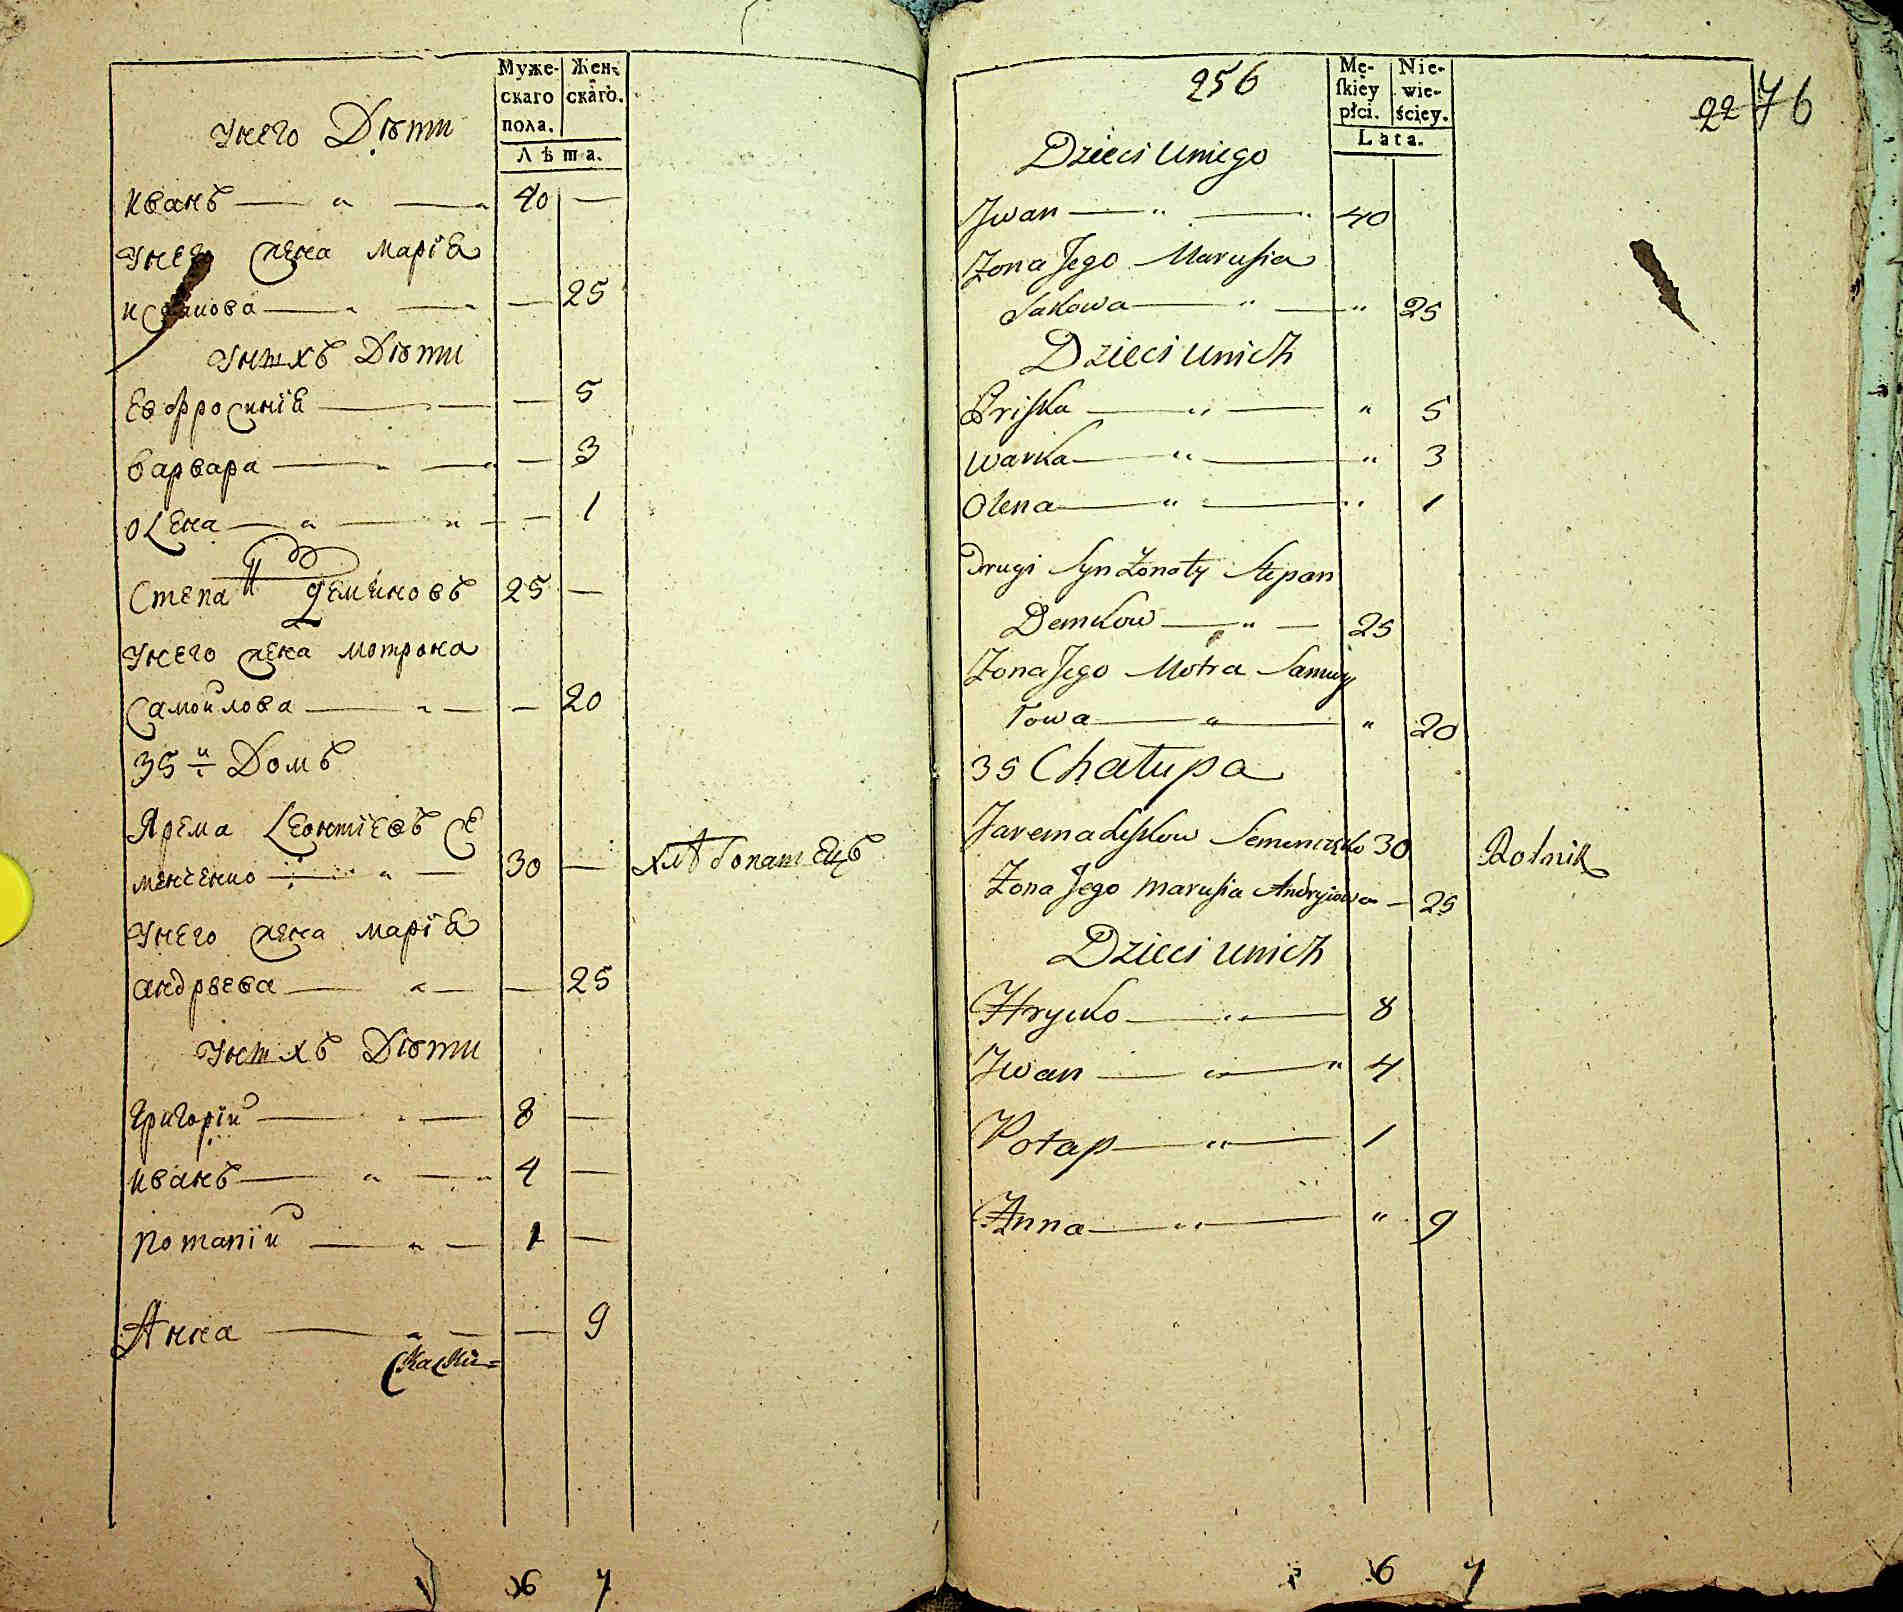 Муже- Жен-
скаго скаго.
пола.
Лѣта.
Унего Дѣти
Иванъ — „ — 40 —
Унего жена Марїя
Исакова — „ — — 25
Унихъ Дѣти
Евфросинїя — — 5
Варвара — „ — — 3
Олена — „ — „ — 1
Степанъ Деменовъ 25 —
Унего жена Мотрона
Самойлова — „ — — 20
35й Домъ
Ярема Леонтїевъ Се
менченко — „ — 30 — хлѣбопашецъ
Унего жена Марїя
Андрѣева — „ — — 25
Унихъ Дѣти
Григорїй — „ — 8 —
Иванъ — „ — 4 —
Потапїй — „ — 1 —
Анна — „ — — 9
6 7
256
Mę- Nie-
ſkiey wie-
płci. ściey.
Lata.
22 76
Dzieci Uniego
Jwan — „ — 40
Żona Jego Marusia
Sakowa — „ — „ 25
Dzieci Unich
Priska — „ — „ 5
Warka — „ — „ 3
Olena — „ — „ 1
Drugi Syn Żonaty Stepan
Demkow — „ — 25
Żona Jego Motra Samuy
łowa — „ — „ 20
35 Chałupa
Jarema Leskow Semenczęko 30 Rolnik
Żona Jego Marusia Andryiowa — 25
Dzieci Unich
Hrycko — „ — 8
Jwan — „ — „ 4
Potap — „ — 1
Anna — „ — „ 9
6 7